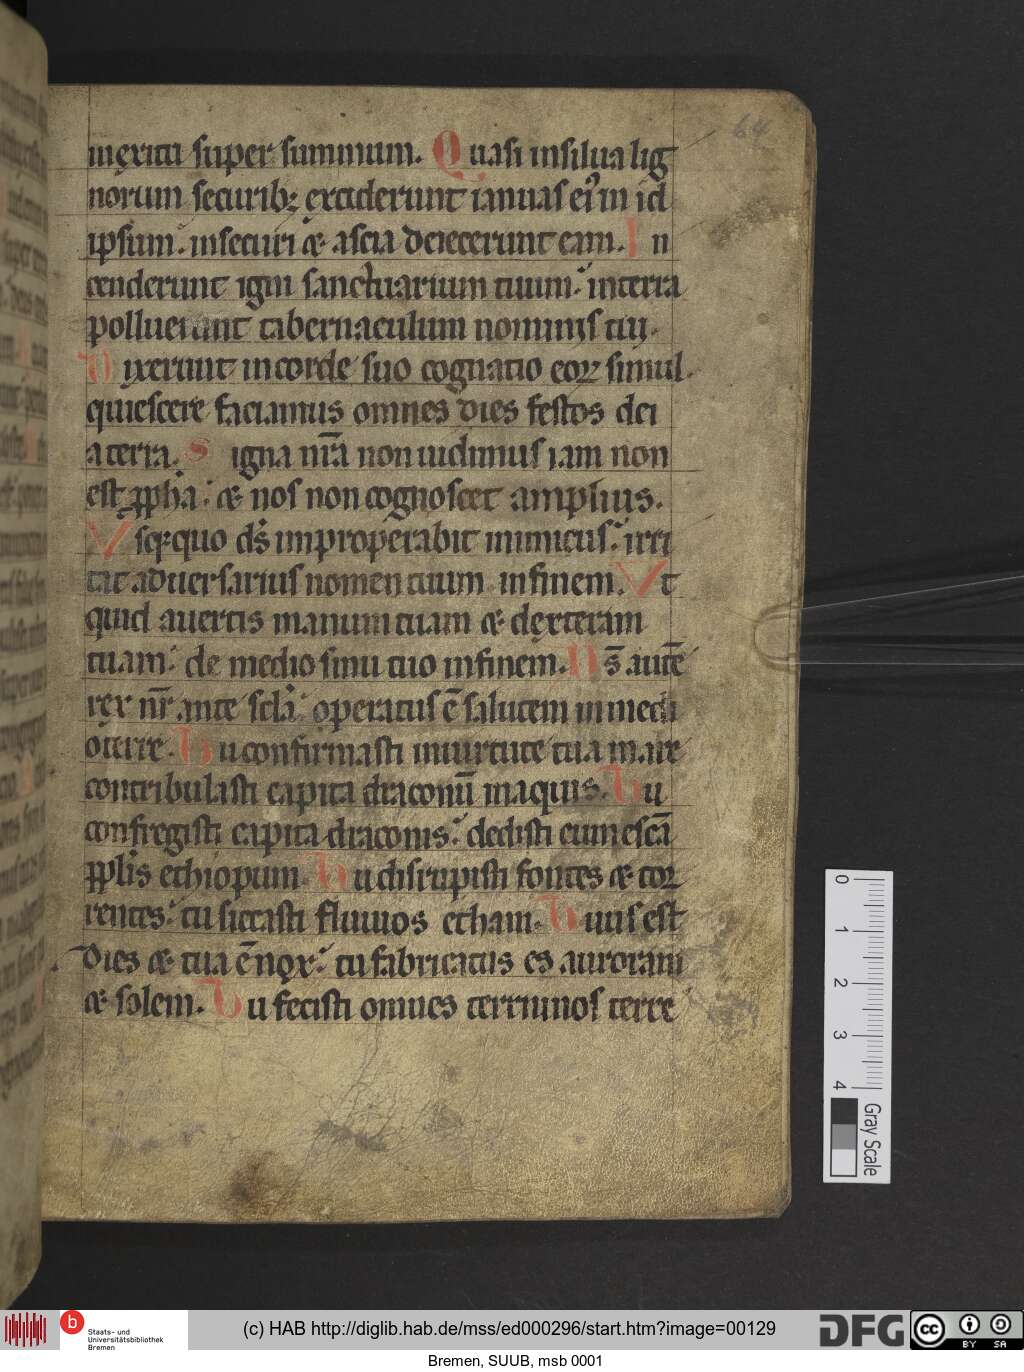 64
in exitu super summum. Quasi in silua lig
norum securibꝫ exciderunt ianuas eiꝰ in id
ipsum. in securi & ascia deiecerunt eam. In
cenderunt igni sanctuarium tuum. in terra
polluerunt tabernaculum nominis tui.
Dixerunt in corde suo cognatio eoꝝ simul.
quiescere faciamus omnes dies festos dei
a terra. Signa nr̄a non uidimus iam non
est ꝓpha. & nos non cognoscet amplius.
Vsqꝫquo ds̄ improperabit inimicus. irri
tat aduersarius nomen tuum in finem. Vt
quid auertis manum tuam & dexteram
tuam. de medio sinu tuo in finem. Ds̄ autē
rex nr̄ ante scła operatus ē salutem in medi
o terre. Tu confirmasti in uirtute tua mare
contribulasti capita draconū in aquis. Tu
confregisti capita draconis. dedisti eum escā
ppłis ethiopum. Tu disrupisti fontes & tor
rentes. tu siccasti fluuios etham. Tuus est
dies & tua ē nox. tu fabricatus es auroram
& solem. Tu fecisti omnes terminos terre
0
1
2
3
4
Gray Scale
b
Staats- und
Universitätsbibliothek
Bremen
(c) HAB http://diglib.hab.de/mss/ed000296/start.htm?image=00129
DFG
cc
BY SA
Bremen, SUUB, msb 0001